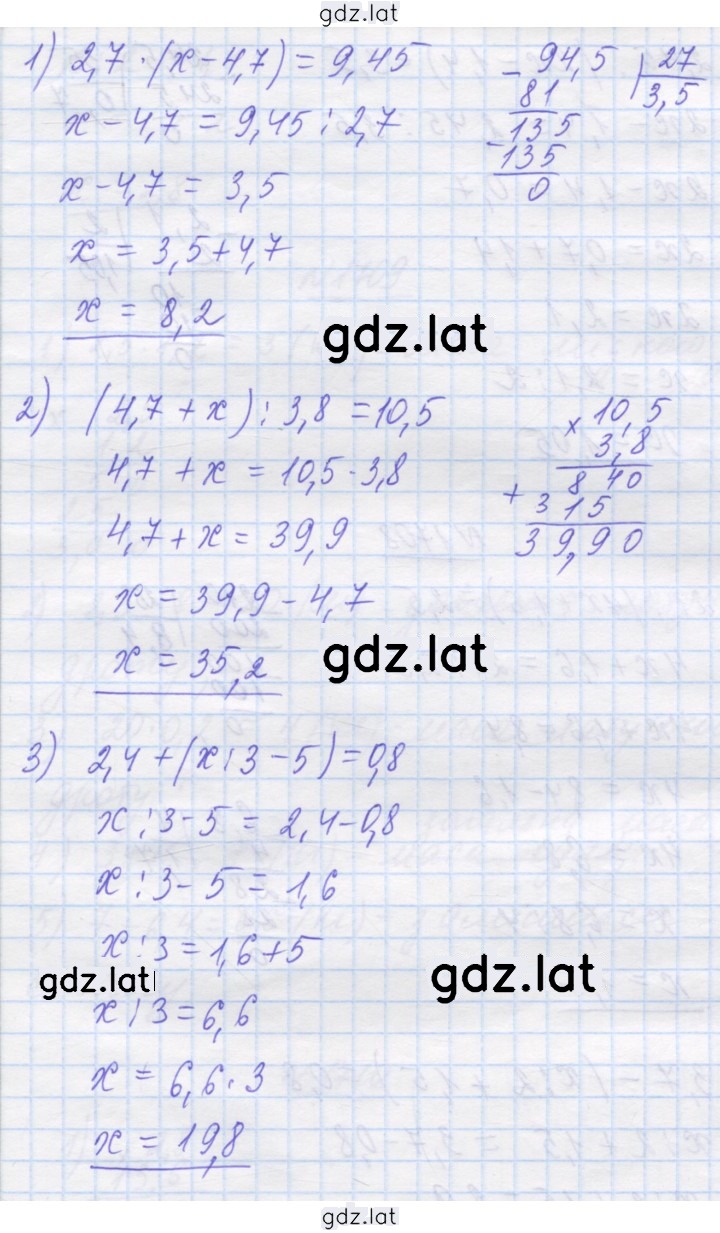 gdz.lat
1) 2,7 · (x − 4,7) = 9,45
x − 4,7 = 9,45 : 2,7
x − 4,7 = 3,5
x = 3,5 + 4,7
x = 8,2
− 94,5 | 27
81
3,5
135
− 135
0
gdz.lat
2) (4,7 + x) : 3,8 = 10,5
4,7 + x = 10,5 · 3,8
4,7 + x = 39,9
x = 39,9 − 4,7
x = 35,2
× 10,5
3,8
840
+ 315
39,90
gdz.lat
3) 2,4 + (x : 3 − 5) = 0,8
x : 3 − 5 = 2,4 − 0,8
x : 3 − 5 = 1,6
x : 3 = 1,6 + 5
gdz.lat
gdz.lat
x : 3 = 6,6
x = 6,6 · 3
x = 19,8
gdz.lat